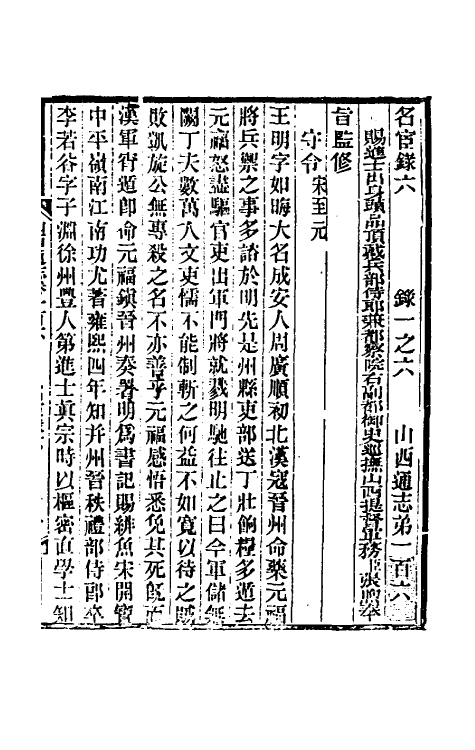 名宦錄六 錄一之六 山西通志弟一百六
賜進士出身頭品頂戴兵部侍郎兼都察院右副都御史巡撫山西提督軍務張煦奉
旨監修
守令宋至元
王明字如晦大名成安人周廣順初北漢寇晉州命藥元福
將兵禦之事多諮於明先是州縣吏部送丁壯餉糧多遁去
元福怒盡驅官吏出軍門將就戮明馳往止之曰今軍儲無
闕丁夫數萬人文吏懦不能制斬之何益不如寬以待之賊
敗凱旋公無專殺之名不亦善乎元福感悟悉免其死旣而
漢軍宵遁卽命元福鎭晉州奏署明爲書記賜緋魚宋開寶
中平嶺南江南功尤著雍熙四年知并州晉秩禮部侍郎卒
李若谷字子淵徐州豐人第進士眞宗時以樞密直學士知